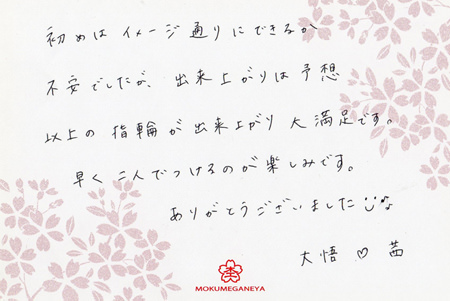 初めは イメージ通りにできるか
不安でしたが、出来上がりは予想
以上の指輪が出来上がり大満足です。
早く二人でつけるのが楽しみです。
ありがとうございました
大悟 ♡ 茜
MOKUMEGANEYA